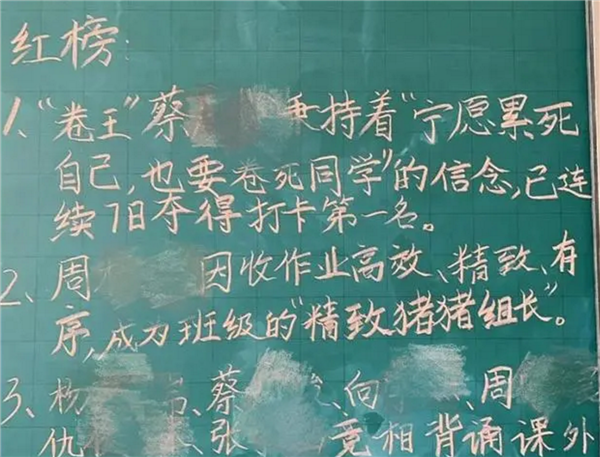 红榜:
1、"卷王"蔡 秉持着"宁愿累死
自己,也要卷死同学"的信念,已连
续7日夺得打卡第一名。
2、周 因收作业高效、精致、有
序,成为班级的"精致猪猪组长"。
3、杨 、蔡 、向 、周
仇 、张 竞相背诵课外